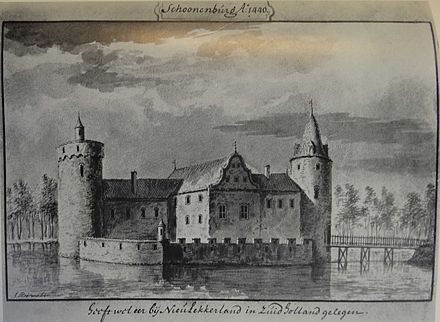 Schoonenburg A:o 1440.
heeft wel eer bij Nieu Lekkerland in Zuid Holland gelegen.